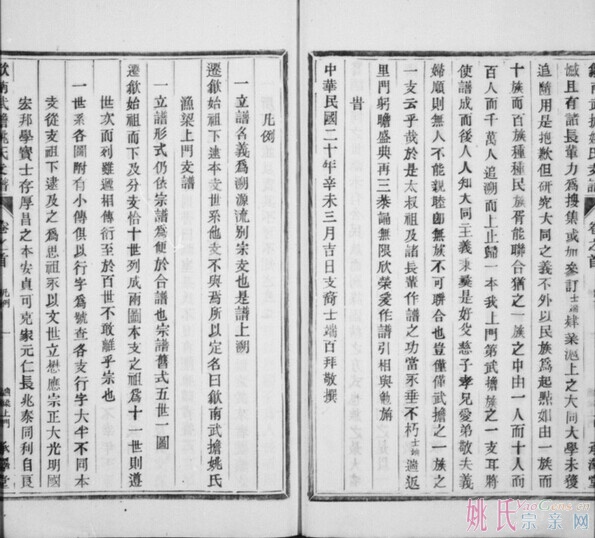 憾且有諸長輩力爲搜集或加叅訂士端肄業滬上之大同大學未獲
追隨用是抱歉但研究大同之義不外以民族爲起點如由一族而
十族而百族種種民族胥能聯合猶之一本之中由一人而十人而
百人而千萬人追溯而上止歸一本我上門第武擔族之一支耳將
使譜成而後人人知大同主義秉彝是好父慈子孝兄愛弟敬夫義
婦順則無人不能親睦卽無族不可聯合也豈僅僅武擔之一族之
一支云乎哉於是太叔祖及諸長輩作譜之功當永垂不朽士端適返
里門躬瞻盛典再三恭誦無限欣榮爰作譜引相與勉旃
旹
中華民國二十年辛未三月吉日支裔士端百拜敬撰
歙南武擔姚氏支譜
卷之首
漁梁上門
承澤堂
凡例
一立譜名義爲溯源流別宗支也是譜上溯
遷歙始祖而下逮本支世系他支不與焉所以定名曰歙南武擔姚氏
漁梁上門支譜
一立譜形式仍依宗譜爲便於合譜也宗譜舊式五世一圖
遷歙始祖而下及分支恰十世列成兩圖本支之祖爲十一世則遵
世次而列雖遞相傳衍至於百世不敢離乎宗也
一世系各圖附有小傳俱以行字爲號查各支行字大半不同本
支從支祖下逮及之爲思祖永以文世立懋應宗正大光明國
宏邦學寶士存厚昌之本安貞可克家元仁長兆泰同利自良
歙南武擔姚氏支譜
卷之首
凡例
一
漁梁上門
承澤堂
姚氏宗亲网
YaoGens.cn